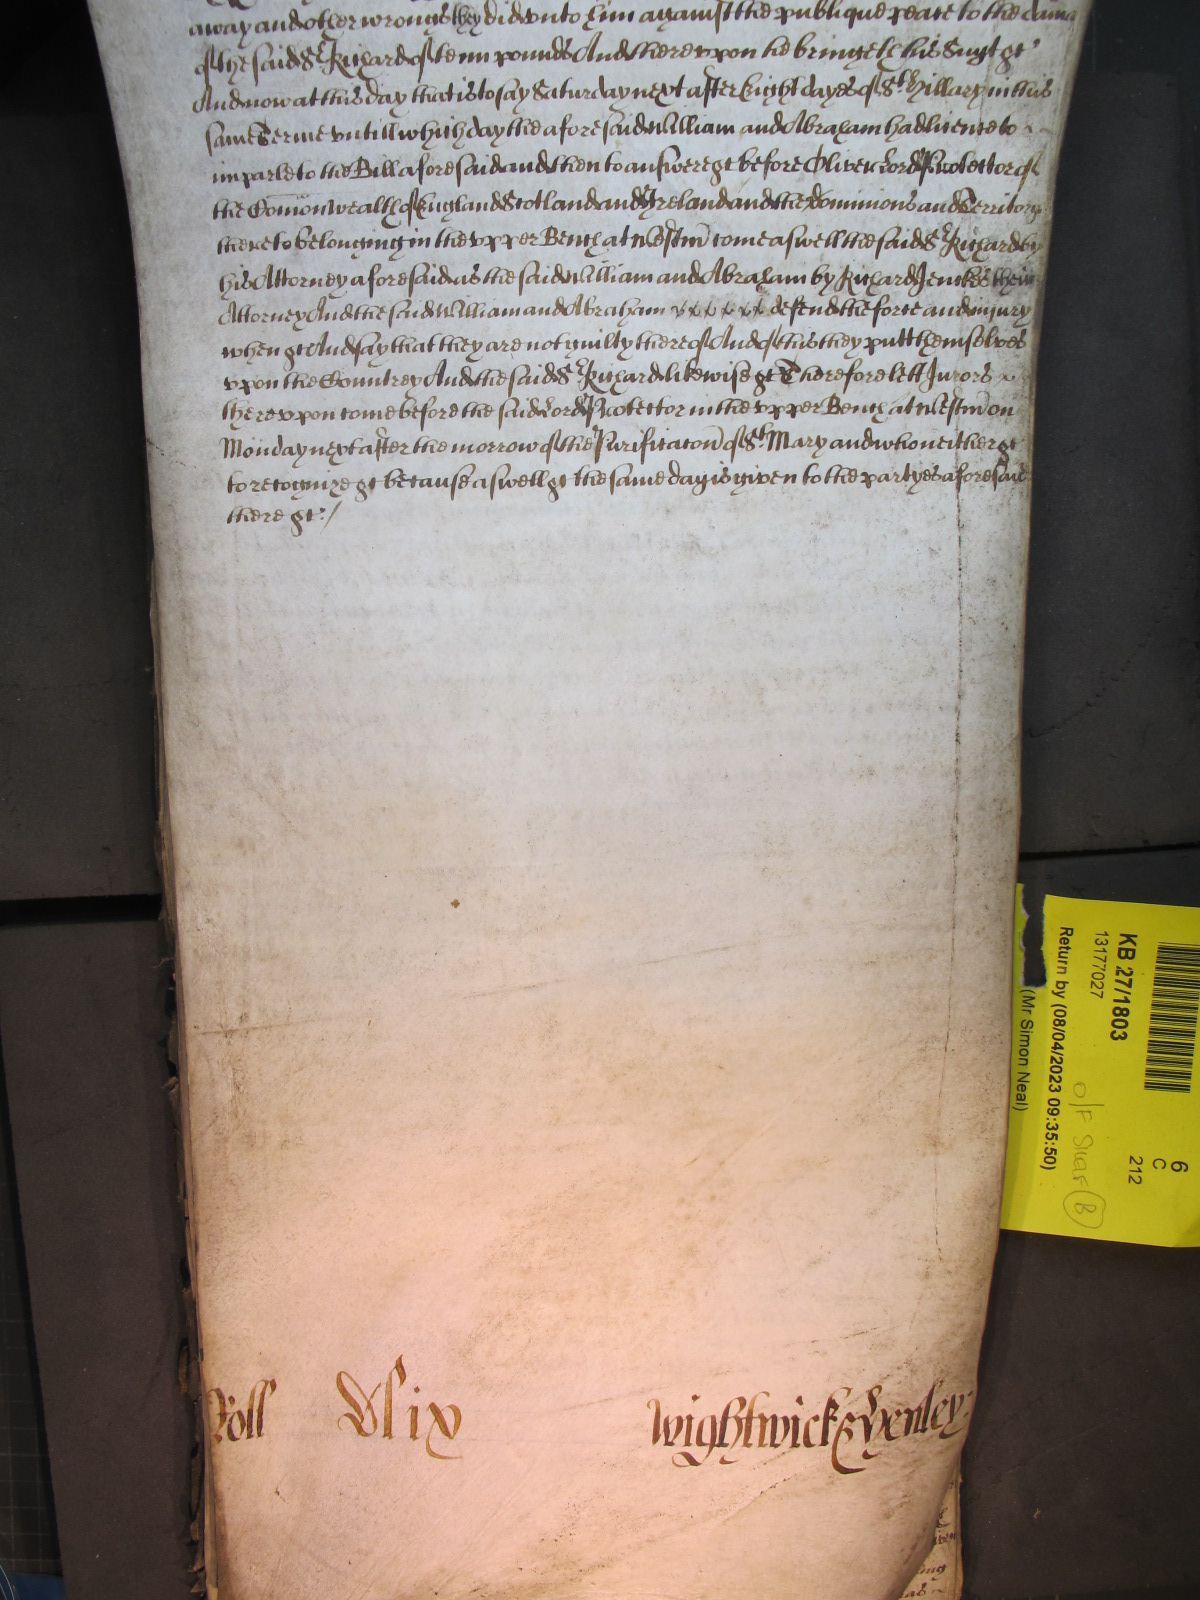 away and other wrongs they did unto him against the publique peace to the dama
of the said Sr Richard of tenn pounds And thereuppon he bringeth his Suyt &c
And now at this day that is to say Saturday next after Eight dayes of St Hillary in this
same Terme untill which day the aforesaid William and Abraham had licence to
imparle to the Bill aforesaid and then to answere &c before Oliver Lord Protector of
the Comonwealth of England Scotland and Ireland and the Dominions and Territory
thereto belonging in the upper Bench at Westm come aswell the said Sr Richard by
his Attorney aforesaid as the said William and Abraham by Richard Jenckes their
Attorney And the said William and Abraham x x x x x x defend the force and injury
when &c And say that they are not guilty thereof And of this they putt themselves
uppon the Countrey And the said Sr Richard likewise &c Therefore lett Jurors
thereuppon come before the said Lord Protector in the upper Bench at Westm on
Monday next after the morrow of the Purificaton of St Mary and who neither &c
to recognize &c because aswell &c the same day is given to the partyes aforesaid
there &c
Roll Dlix Wightwick & Henley
KB 27/1803
13177027
Return by (08/04/2023 09:35:50)
(Mr Simon Neal)
O/F Shelf B
6
C
212